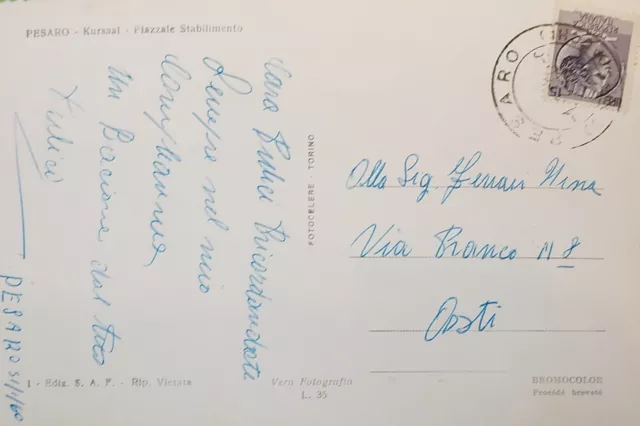 PESARO - Kursaal - Piazzale Stabilimento
Cara Fulici Ricordandoti
Sempre nel mio
Un Bacione dal tuo
Fulici
PESARO 51/1/60
1 - Ediz. S. A. F. - Rip. Vietata
Vera Fotografia
L. 35
FOTOCELERE - TORINO
Alla Sig. Ferrari Nina
Via Bianco N 8
Asti
BROMOCOLOR
Procédé breveté